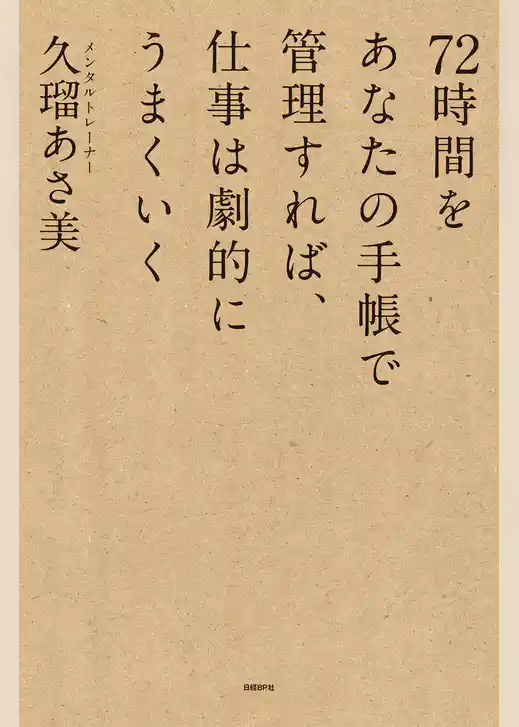 72時間を
あなたの手帳で
管理すれば、
仕事は劇的に
うまくいく
メンタルトレーナー
久瑠あさ美
日経BP社